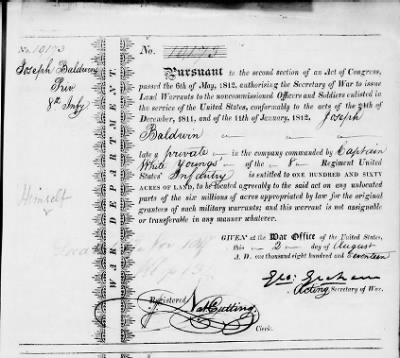 No. 10173
Joseph Baldwin
Priv
8th Infy
Himself
WAR DEPARTMENT
No. 10173
Pursuant to the second section of an Act of Congress,
passed the 6th of May, 1812, authorising the Secretary of War to issue
Land Warrants to the noncommissioned Officers and Soldiers enlisted in
the service of the United States, conformably to the acts of the 24th of
December, 1811, and of the 11th of January, 1812. Joseph
Baldwin
late a private in the company commanded by Captain
White Youngs' of the 8 Regiment United
States' Infantry is entitled to ONE HUNDRED AND SIXTY
ACRES OF LAND, to be located agreeably to the said act on any unlocated
parts of the six millions of acres appropriated by law for the original
grantees of such military warrants; and this warrant is not assignable
or transferable in any manner whatever.
GIVEN at the War Office of the United States,
this 2 day of August
A. D. one thousand eight hundred and Seventeen
Geo: Graham
Acting Secretary of War.
Registered Nat Cutting
Clerk.